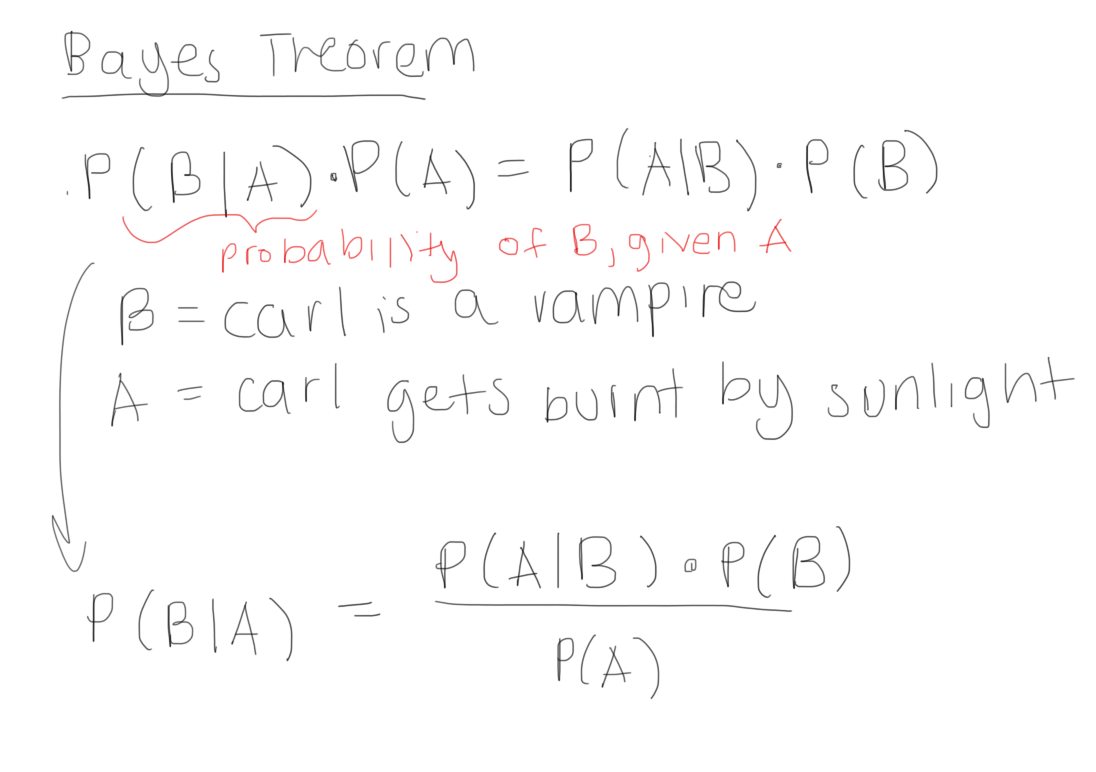 Bayes Theorem
P(B|A)·P(A) = P(A|B)·P(B)
probability of B, given A
B = carl is a vampire
A = carl gets burnt by sunlight
P(A|B)·P(B)
P(B|A) =
P(A)